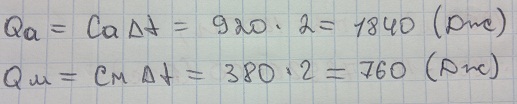 Qа = Cа Δt = 920 · 2 = 1840 (Дж)
Qм = Cм Δt = 380 · 2 = 760 (Дж)